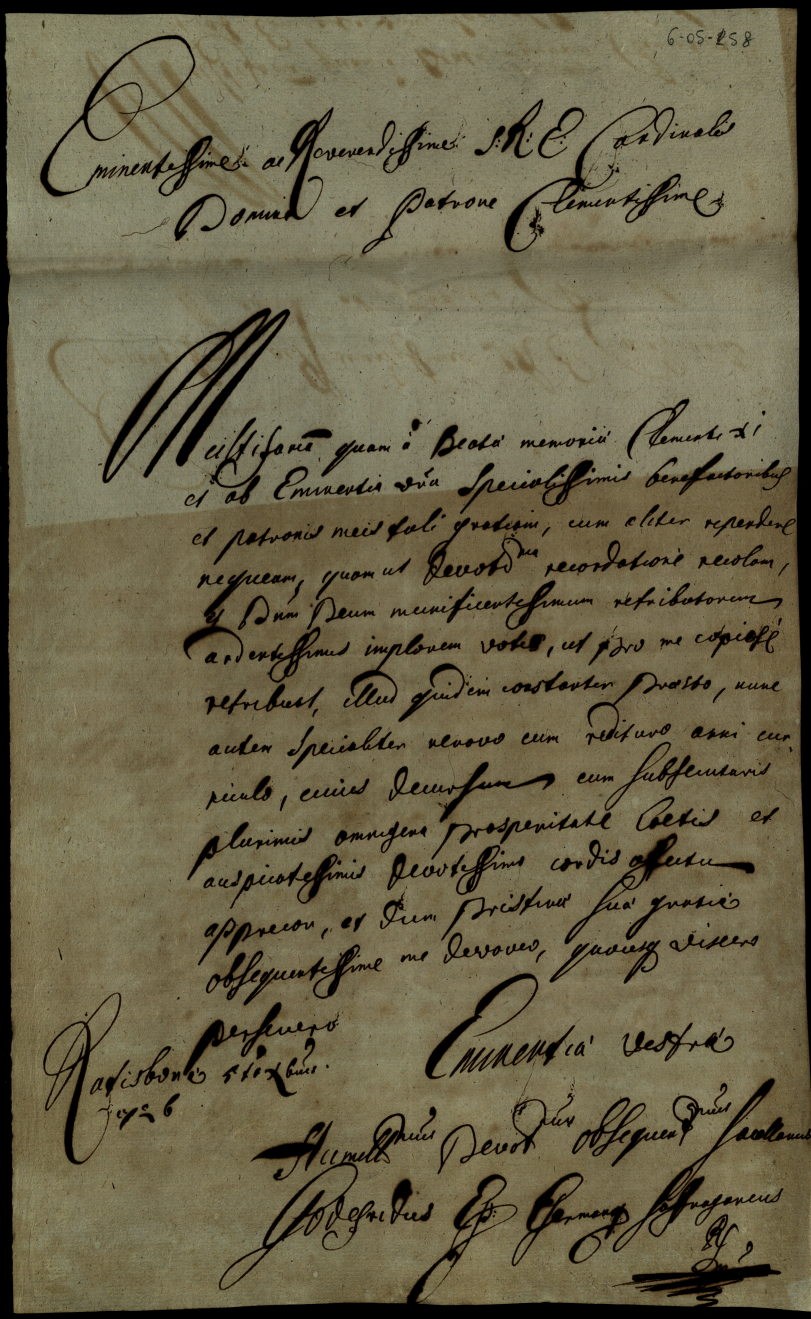 6-05-258
Eminentissime ac Reverendissime S: R: E: Cardinalis
Domine et Patrone Clementissime
quam â Beatâ memoriâ Clemente XI
et ab Eminentia vr̃a Specialissimis benefactoribus
et patronis meis tuli gratiam, cum aliter rependere
nequeam, quam ut recordatione recolam,
Dnm̃ Deum munificentissimum retributorem
ardentissimis implorem votis, ut pro me copiosè
retribuat, illud quidem constanter praesto, nunc
autem Specialiter renovo cum redituro anni cur-
riculo, cuius decursum cum subsecuturis
plurimis omnigena prosperitate laetis et
auspicatissimis devotissimo cordis affectu
apprecor, et dum pristinae suae gratiae
obsequentissime me devoveo, quousque vixero
persevero
Eminentiae Vestrae
Ratisbonae 5ta Xbris.
Humillmus Devotmus Obsequentmus Sacellanus
Godefridus Ep: Suffraganeus